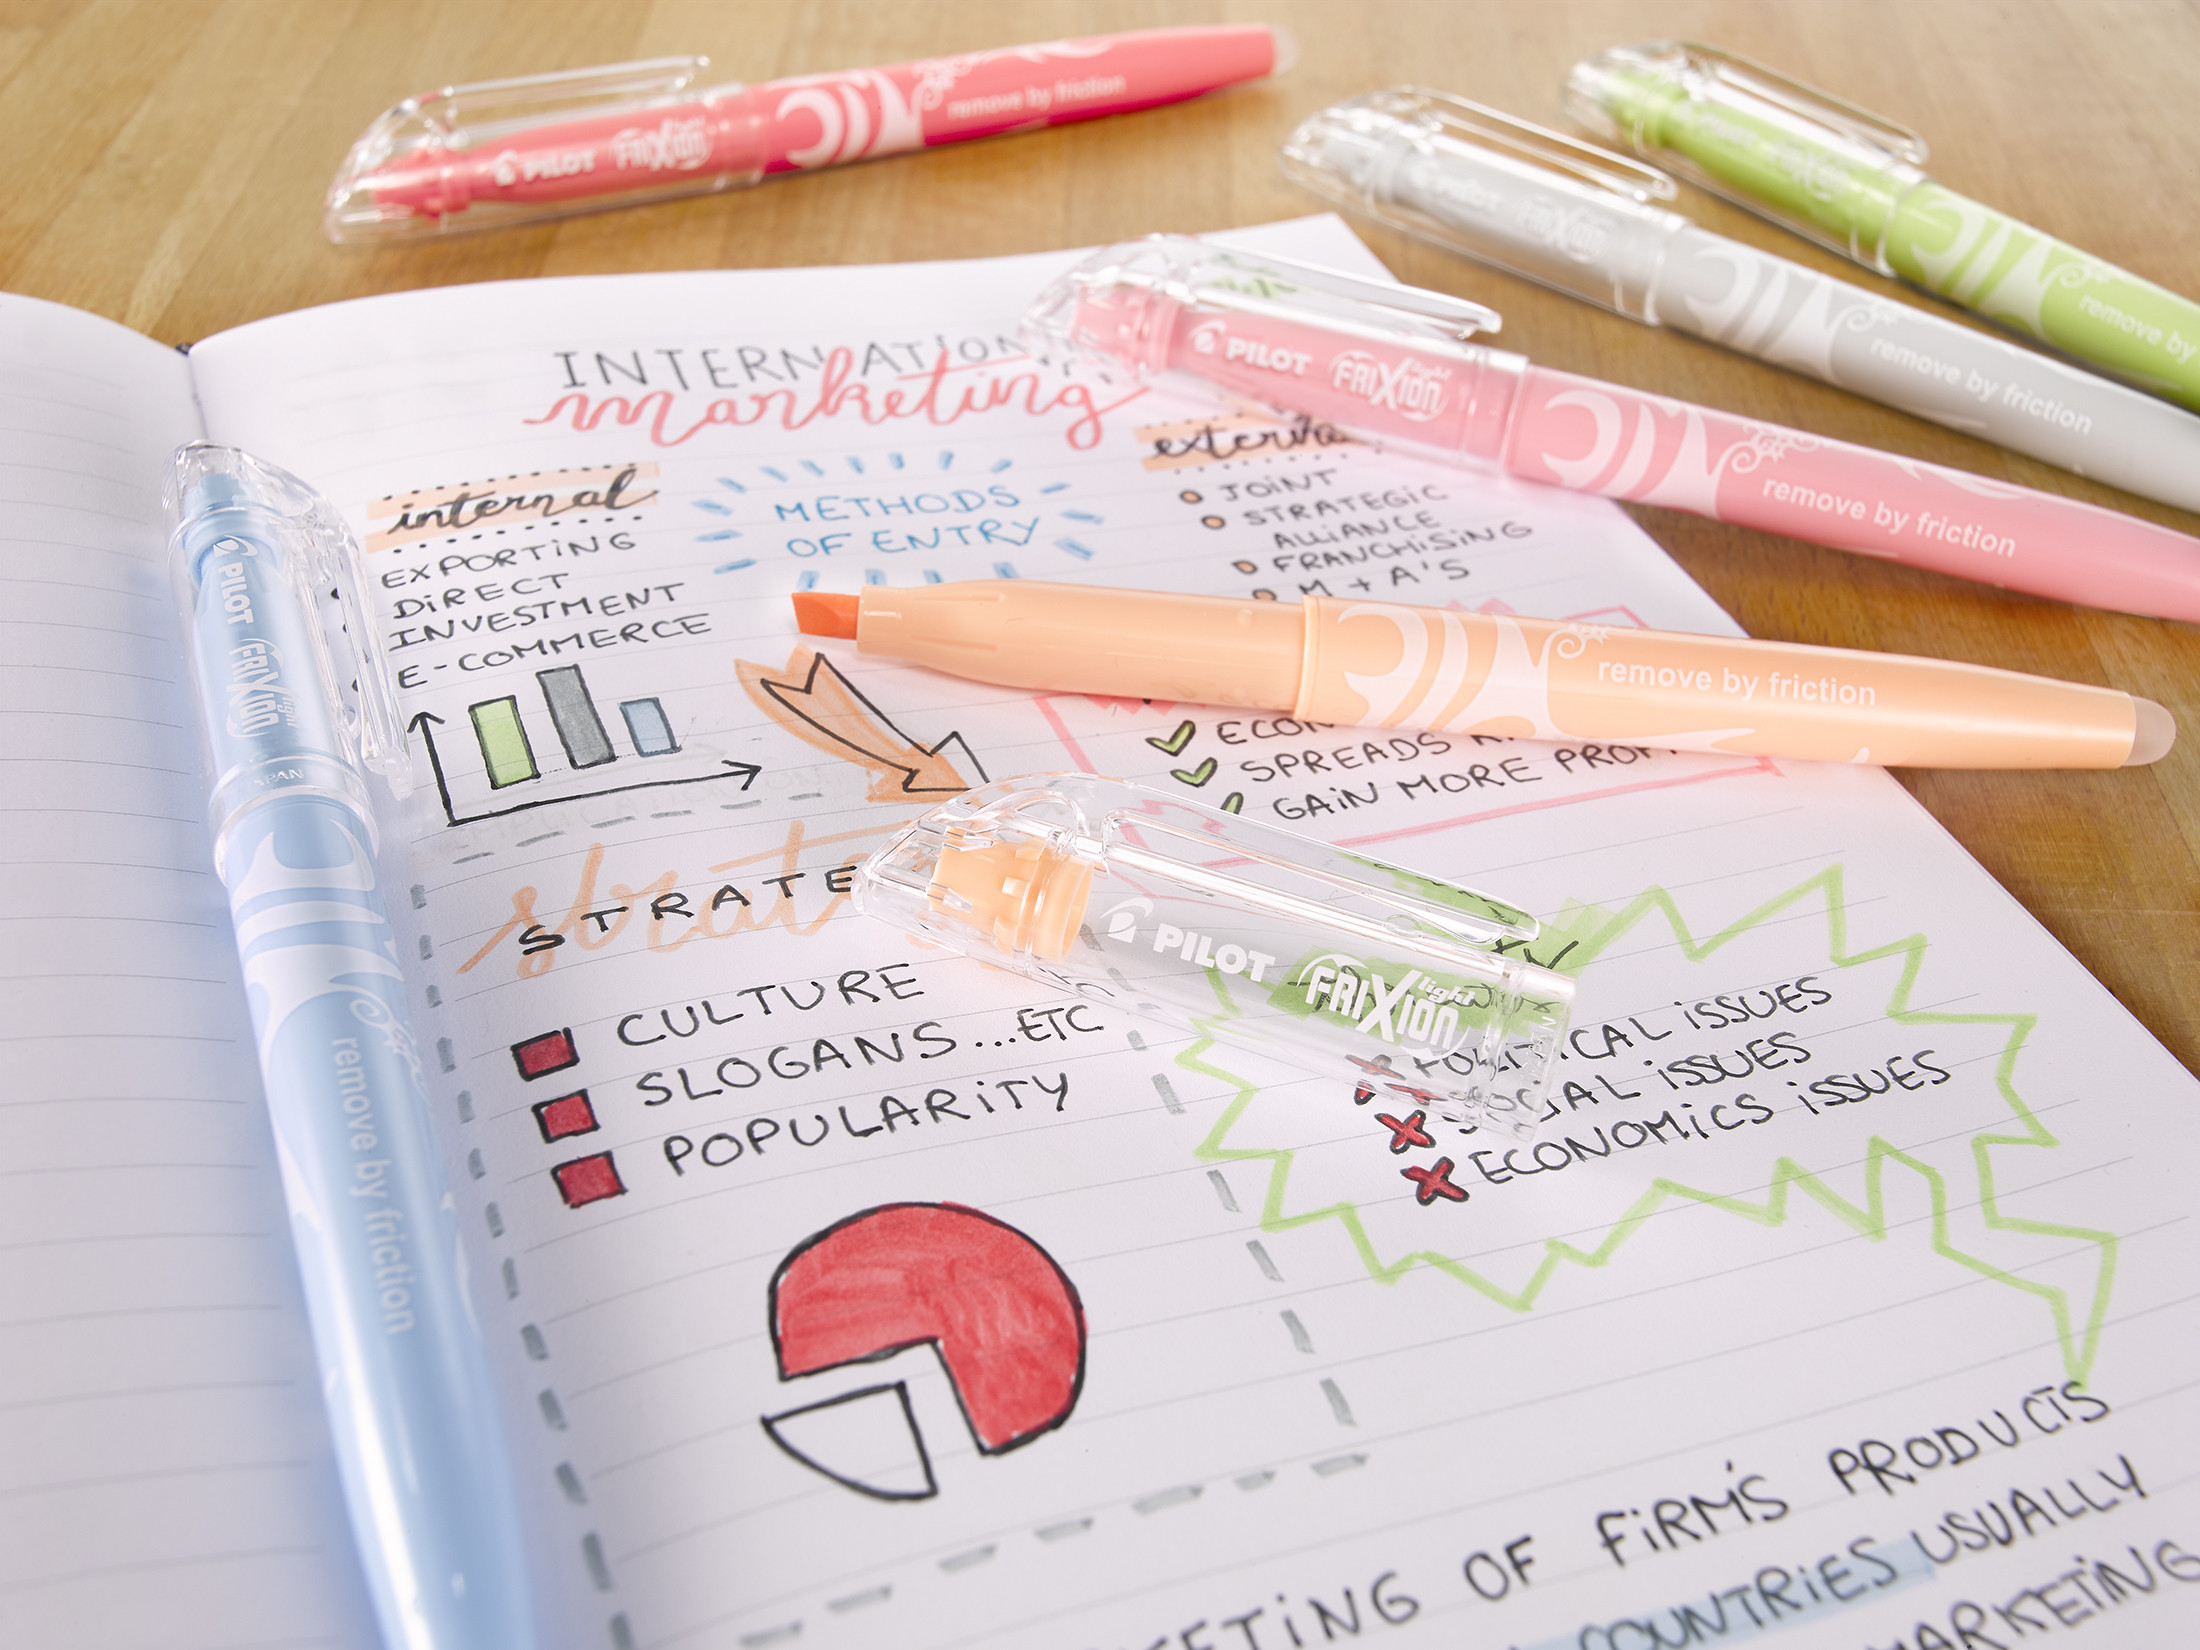 PILOT FRIXION light remove by friction
PILOT FRIXION remove by friction
PILOT FRIXION light remove by friction
remove by
remove by friction
PILOT FRIXION light
PILOT FRIXION light remove by friction
JAPAN
INTERNATION
marketing
internal
EXPORTING
DIRECT
INVESTMENT
E-COMMERCE
METHODS
OF ENTRY
JOINT
STRATEGIC
ALLIANCE
FRANCHISING
M + A'S
SPREADS
GAIN MORE
STRATE
CULTURE
SLOGANS...ETC
POPULARITY
POLITICAL ISSUES
SOCIAL ISSUES
ECONOMICS ISSUES
OF FIRM'S PRODUCTS
COUNTRIES USUALLY
MARKETING